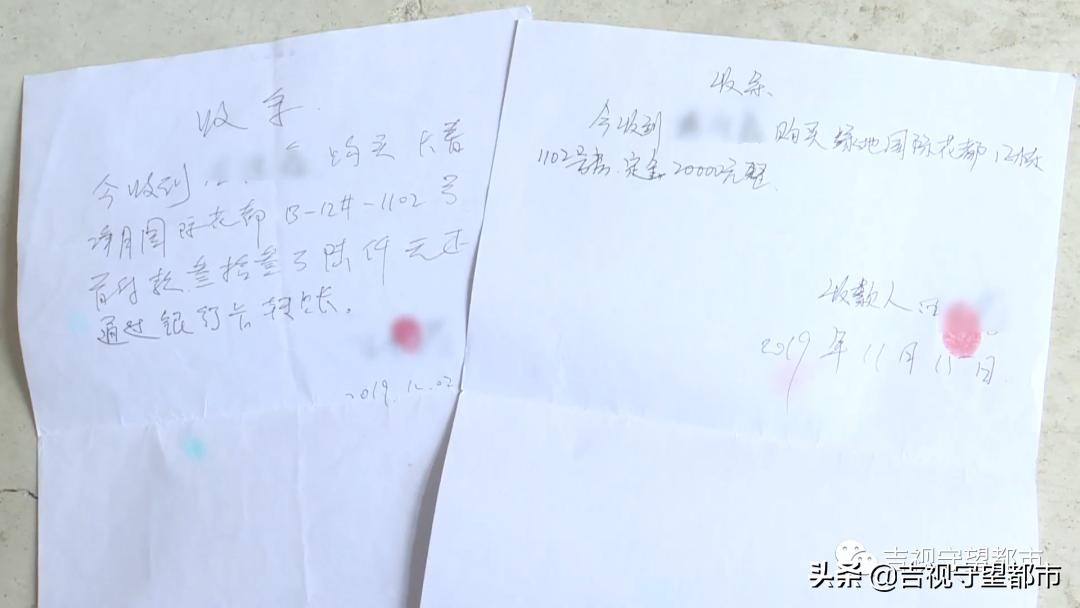 收条
今收到 购买 长春
净月国际花都B-12#-1102号
首付款叁拾叁万陆仟元正
通过银行卡转账。
2019.12.02
收条
今收到 购买绿地国际花都12栋
1102号房.定金20000元整.
收款人
2019年11月15日.
吉视守望都市
头条 @吉视守望都市